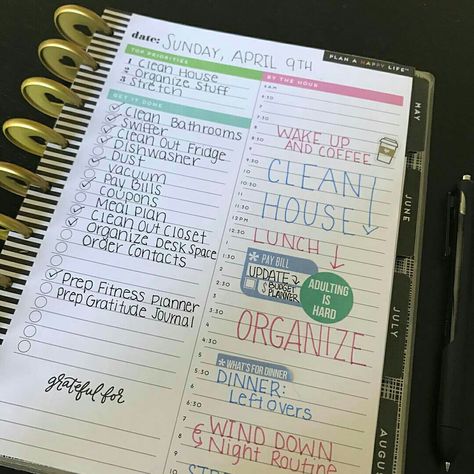 date: SUNDAY, APRIL 9TH
PLAN A HAPPY LIFE™
TOP PRIORITIES
1 Clean House
2 Organize Stuff
3 Stretch
GET IT DONE
Clean Bathrooms
Swiffer
Clean Out Fridge
Dishwasher
Dust
Vacuum
Pay Bills
Coupons
Meal Plan
Clean Out Closet
Organize Desk Space
Order Contacts
Prep Fitness Planner
Prep Gratitude Journal
grateful for
BY THE HOUR
WAKE UP
AND COFFEE
CLEAN
HOUSE
LUNCH
* PAY BILL
UPDATE
BUDGET
$ PLANNER
ADULTING
IS
HARD
ORGANIZE
* WHAT'S FOR DINNER
DINNER:
Leftovers
WIND DOWN
& Night Routine
MAY
JUNE
JULY
AUGUS